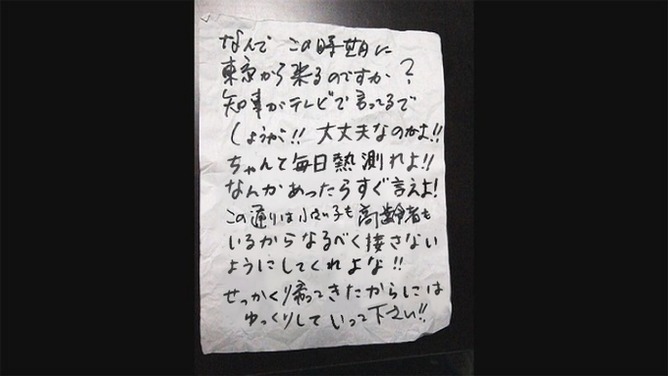 なんで この時期に
東京から来るのですか?
知事がテレビで言ってるで
しょうが!! 大丈夫なのかよ!!
ちゃんと毎日熱測れよ!!
なんかあったらすぐ言えよ!
この通りは小さい子も高齢者も
いるからなるべく接さない
ようにしてくれよな!!
せっかく帰ってきたからには
ゆっくりしていって下さい!!